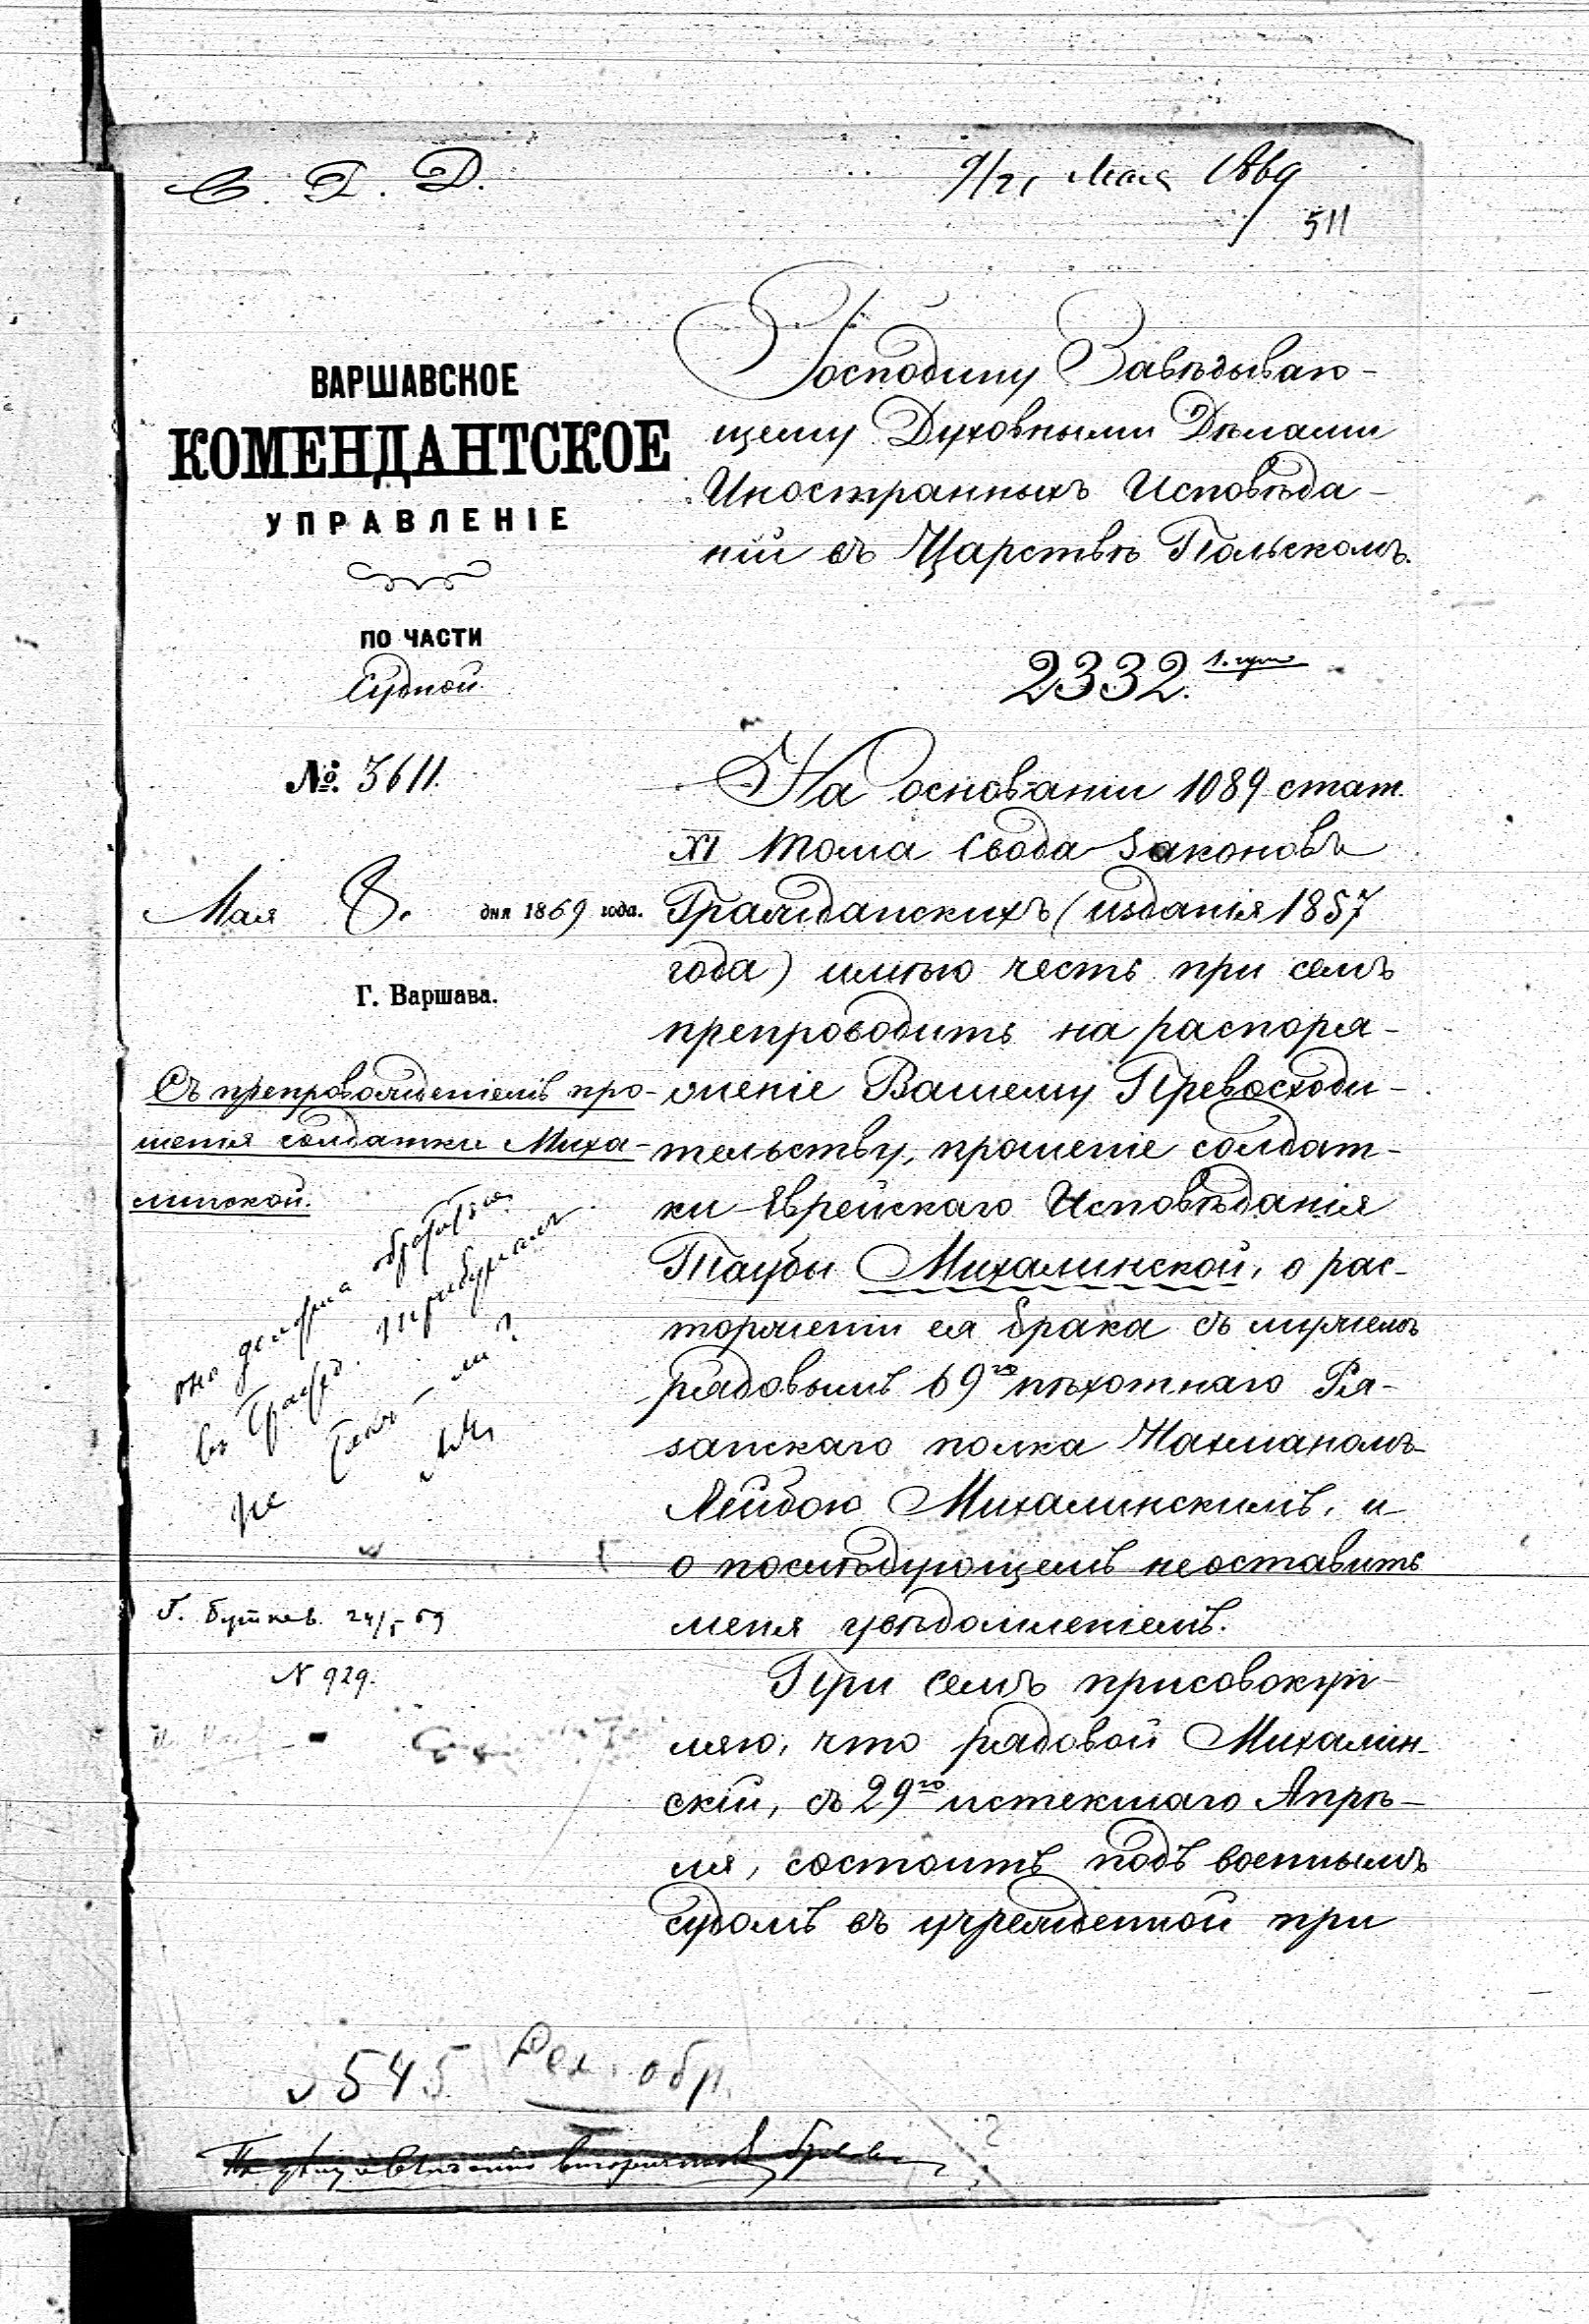 С. Д. Д.
9/21 Мая 1869
511
ВАРШАВСКОЕ
КОМЕНДАНТСКОЕ
УПРАВЛЕНІЕ
ПО ЧАСТИ
Судной.
№ 3611.
Мая 8. дня 1869 года.
Г. Варшава.
Съ препровожденіемъ про-
шенія солдатки Миха-
линской.
она должна обратиться
въ Гражд. Трибуналъ
Не
ли?
24/5 69
N 929.
Господину Завѣдываю-
щему Духовными Дѣлами
Иностранныхъ Исповѣда-
ній въ Царствѣ Польскомъ.
2332.
На основаніи 1089 стат.
XI тома Свода Законовъ
Гражданскихъ (изданія 1857
года) имѣю честь при семъ
препроводить на распоря-
женіе Вашему Превосходи-
тельству, прошеніе солдат-
ки Еврейскаго Исповѣданія
Таубы Михалинской, о рас-
торженіи ея брака съ мужемъ
рядовымъ 69го пѣхотнаго Ря-
занскаго полка Нахманомъ
Лейбою Михалинскимъ, и
о послѣдующемъ неоставить
меня увѣдомленіемъ.
При семъ присовокуп-
ляю, что рядовой Михалин-
скій, съ 29го истекшаго Апрѣ-
ля, состоитъ подъ военнымъ
судомъ въ учрежденной при
545
обр.